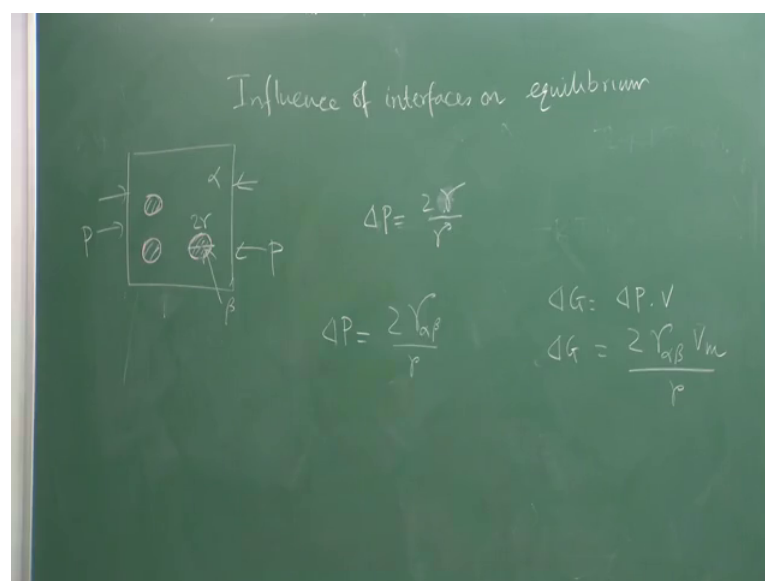 Influence of interfaces on equilibrium
α
P
2r
P
β
ΔP = 2γ/r
ΔP = 2γαβ/r
ΔG = ΔP.V
ΔG = 2γαβ Vm/r